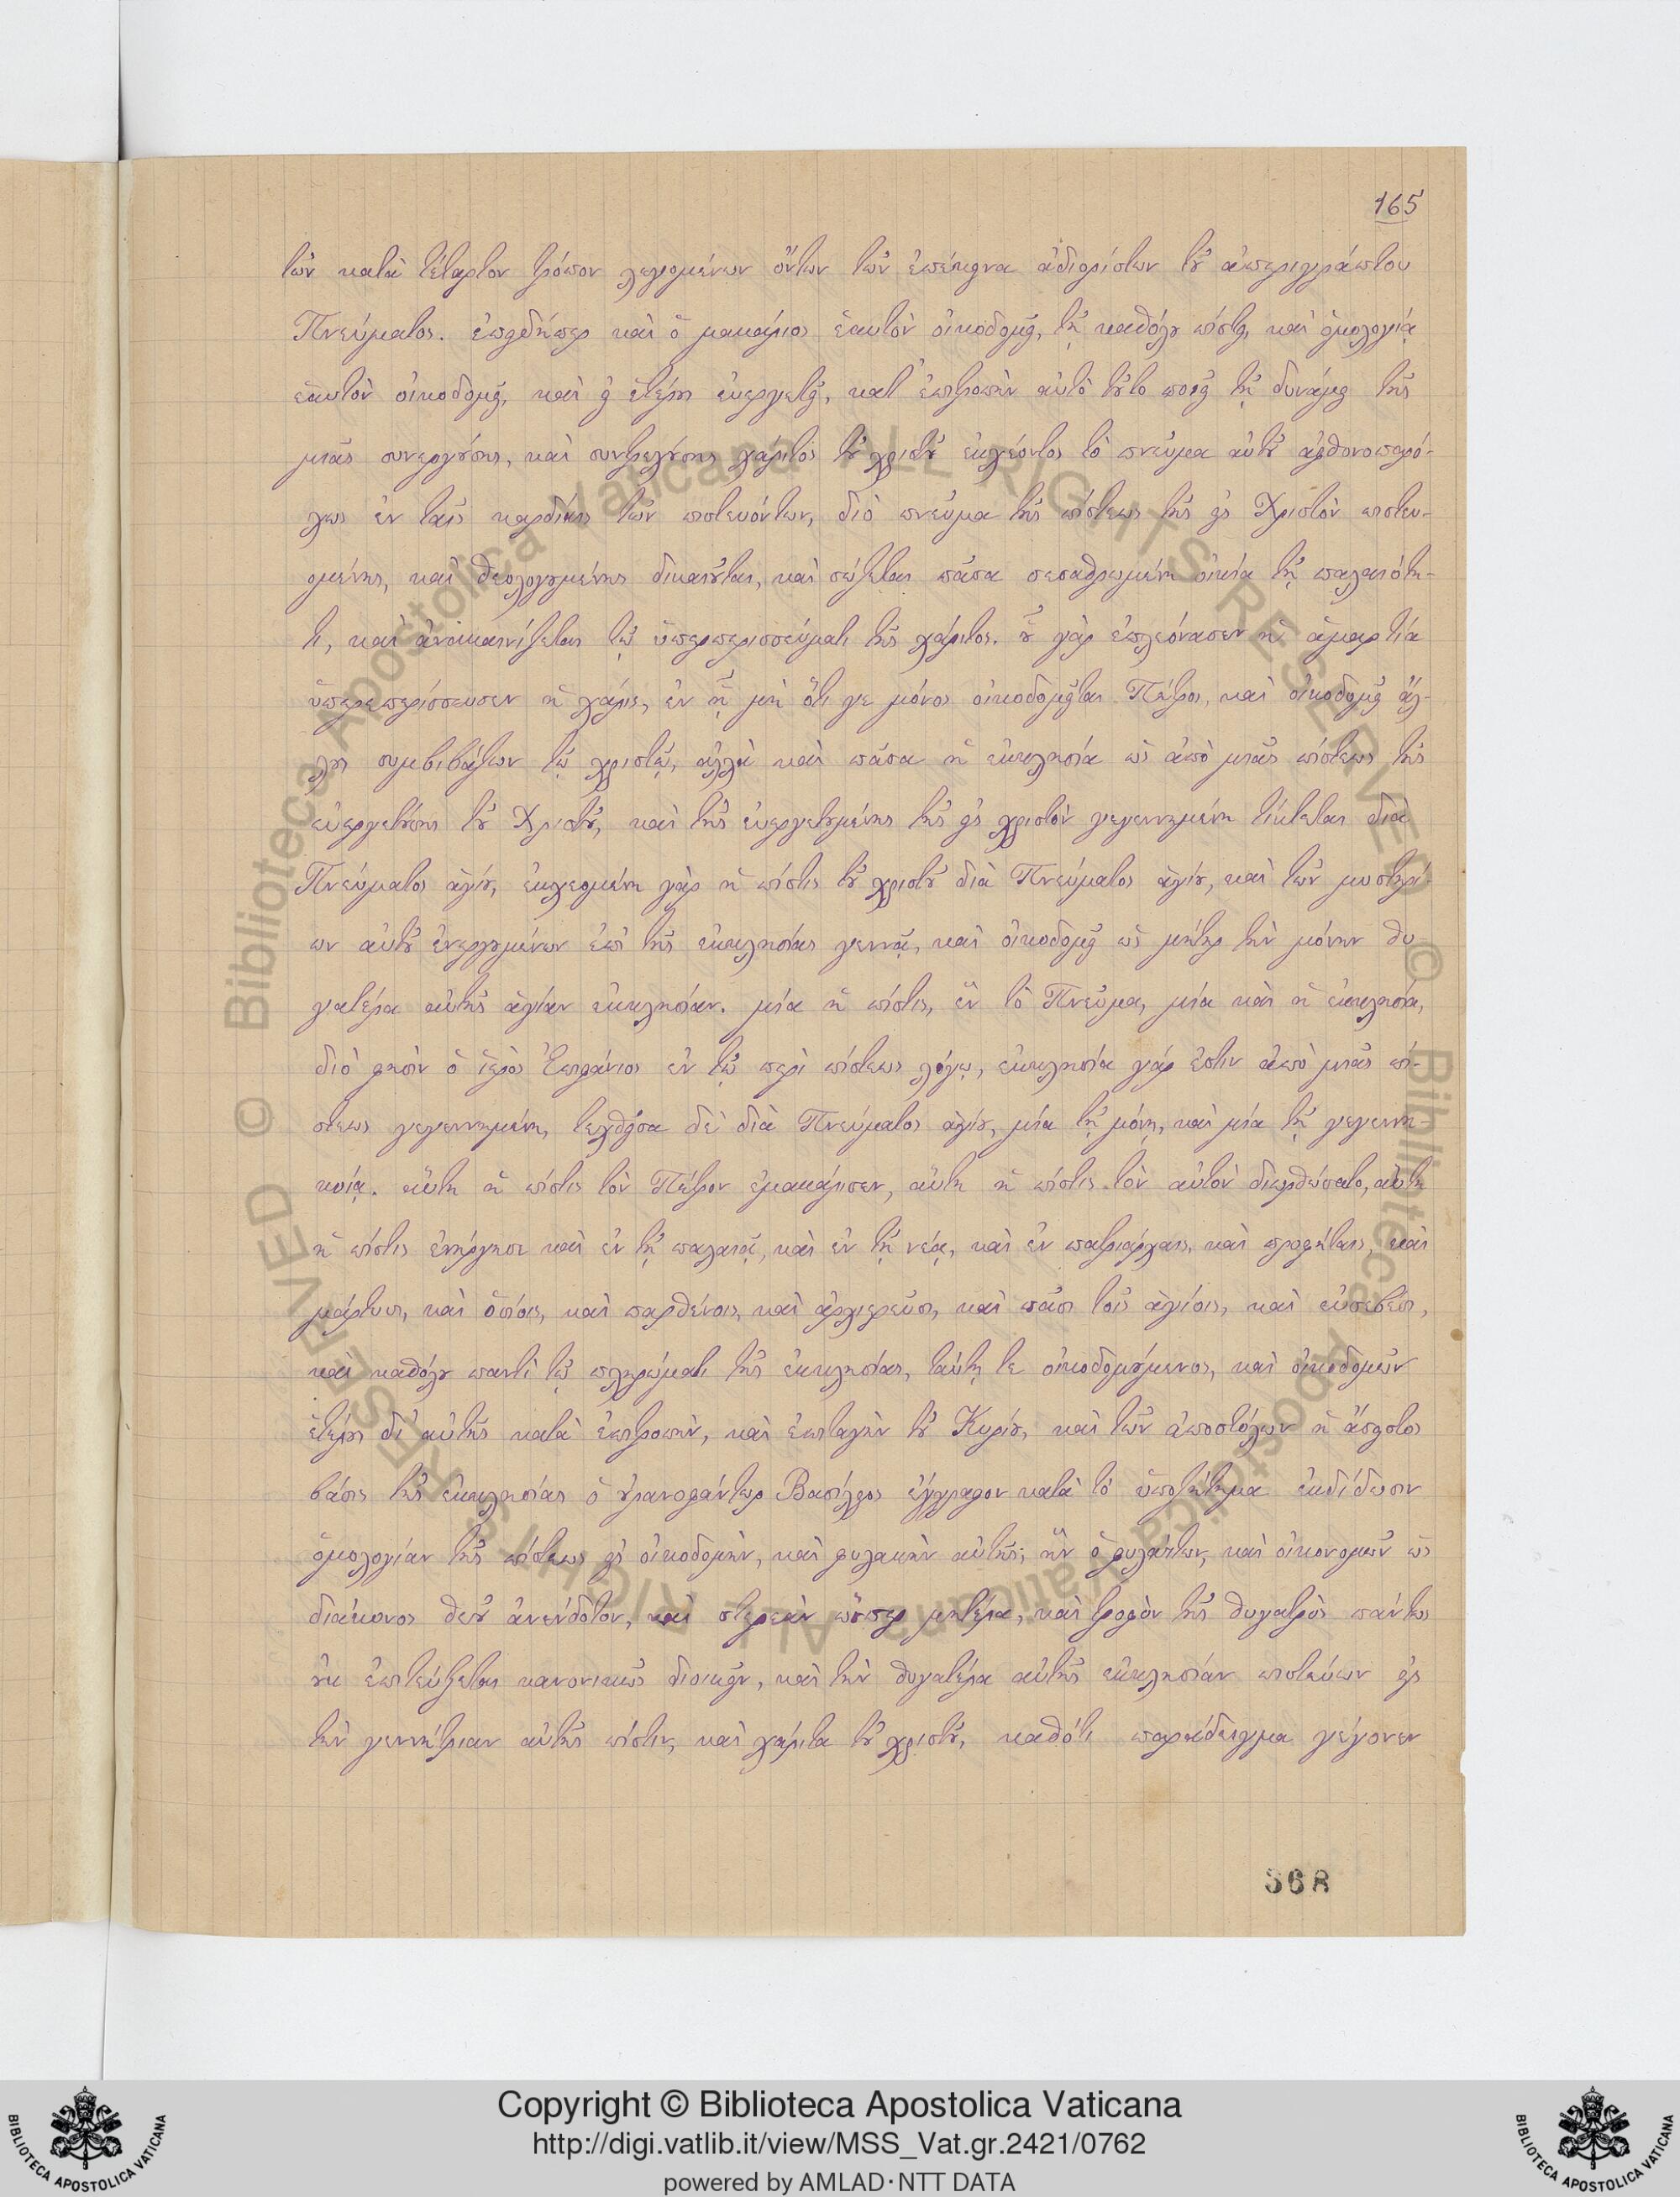 165
τῶν κατὰ τέταρτον τρόπον λεγομένων ὄντων τῶν ἐπέκεινα ἀδιορίστων τοῦ ἀπεριγράπτου
Πνεύματος. ἐπειδήπερ καὶ ὁ μακάριος ἑαυτὸν οἰκοδομεῖ, τῇ καθόλου πίστει, καὶ ὁμολογίᾳ
ἑαυτὸν οἰκοδομεῖ, καὶ εἰ ἑτέρους εὐεργετεῖ, κατ' ἐπιτροπὴν αὐτὸ τοῦτο ποιεῖ τῇ δυνάμει τῆς
μιᾶς συνεργούσης, καὶ συντρεχούσης χάριτος τοῦ χριστοῦ ἐκχέοντος τὸ πνεῦμα αὐτοῦ ἀφθονοπαρό-
χως ἐν ταῖς καρδίαις τῶν πιστευόντων, διὸ πνεῦμα τῆς πίστεως τῆς εἰς Χριστὸν πιστευ-
ομένης, καὶ θεολογουμένης δικαιοῦται, καὶ σώζεται πᾶσα σεσαθρωμένη οἰκία τῇ παλαιότη-
τι, καὶ ἀνακαινίζεται τῷ ὑπερπερισσεύματι τῆς χάριτος. οὗ γὰρ ἐπλεόνασεν ἡ ἁμαρτία
ὑπερεπερίσσευσεν ἡ χάρις, ἐν ᾗ μὴ ὅτι γε μόνος οἰκοδομεῖται Πέτρος, καὶ οἰκοδομεῖ ἄλ-
λους συμβιβάζων τῷ χριστῷ, ἀλλὰ καὶ πᾶσα ἡ ἐκκλησία ὡς ἀπὸ μιᾶς πίστεως τῆς
εὐεργετούσης τοῦ Χριστοῦ, καὶ τῆς εὐεργετουμένης τῆς εἰς χριστὸν γεγεννημένη τίκτεται διὰ
Πνεύματος ἁγίου, ἐκχεομένη γὰρ ἡ πίστις τοῦ χριστοῦ διὰ Πνεύματος ἁγίου, καὶ τῶν μυστηρί-
ων αὐτοῦ ἐνεργουμένων ἐπὶ τῆς ἐκκλησίας γεννᾷ, καὶ οἰκοδομεῖ ὡς μήτηρ τὴν μόνην θυ
γατέρα αὐτῆς ἁγίαν ἐκκλησίαν. μία ἡ πίστις, ἓν τὸ Πνεῦμα, μία καὶ ἡ ἐκκλησία,
διό φησιν ὁ ἱερὸς Ἐπιφάνιος ἐν τῷ περὶ πίστεως λόγῳ, ἐκκλησία γάρ ἐστιν ἀπὸ μιᾶς πί-
στεως γεγεννημένη, τεχθεῖσα δὲ διὰ Πνεύματος ἁγίου, μία τῇ μόνῃ, καὶ μία τῇ γεγεννη-
κυίᾳ. αὕτη ἡ πίστις τὸν Πέτρον ἐμακάρισεν, αὕτη ἡ πίστις τὸν αὐτὸν διωρθώσατο, αὕτη
ἡ πίστις ἐνήργησε καὶ ἐν τῇ παλαιᾷ, καὶ ἐν τῇ νέᾳ, καὶ ἐν πατριάρχαις, καὶ προφήταις, καὶ
μάρτυσι, καὶ ὁσίοις, καὶ παρθένοις, καὶ ἀρχιερεῦσι, καὶ πᾶσι τοῖς ἁγίοις, καὶ εὐσεβέσι,
καὶ καθόλου παντὶ τῷ πληρώματι τῆς ἐκκλησίας, ταύτῃ τε οἰκοδομούμενος, καὶ οἰκοδομῶν
ἑτέρους δι' αὐτῆς κατὰ ἐπιτροπὴν, καὶ ἐπιταγὴν τοῦ Κυρίου, καὶ τῶν ἀποστόλων ἡ ἄσειστος
βάσις τῆς ἐκκλησίας ὁ οὐρανοφάντωρ Βασίλειος ἔγγραφον κατὰ τὸ ὑποζήτημα ἐκδίδωσιν
ὁμολογίαν τῆς πίστεως εἰς οἰκοδομὴν, καὶ φυλακὴν αὐτῆς; ἣν ὁ φυλάττων, καὶ οἰκονομῶν ὡς
διάκονος θεοῦ ἀνενδότον, καὶ στερεὰν ὥσπερ μητέρα, καὶ τροφὸν τῆς θυγατρὸς πάντως
οὐκ ἐπιτεύξεται κανονικῶς διοικεῖν, καὶ τὴν θυγατέρα αὐτῆς ἐκκλησίαν πιστεύων εἰς
τὴν γεννήτριαν αὐτῆς πίστιν, καὶ χάριτα τοῦ χριστοῦ, καθότι παράδειγμα γέγονεν
368
Copyright © Biblioteca Apostolica Vaticana
http://digi.vatlib.it/view/MSS_Vat.gr.2421/0762
powered by AMLAD·NTT DATA